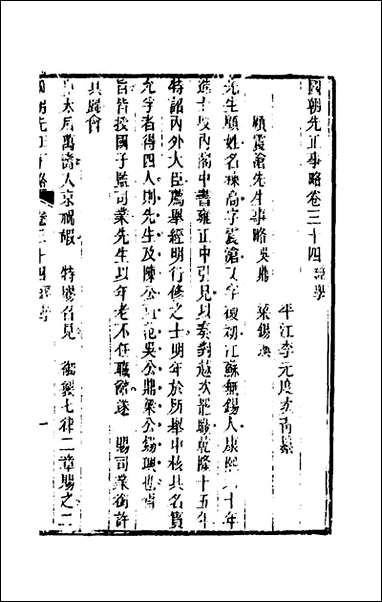 國朝先正事略卷三十四 經學
平江李元度次青纂
顧震滄先生事略 吳鼎 梁錫璵
先生顧姓名棟高字震滄又字復初江蘇無錫人康熙六十年
進士授內閣中書雍正中引見以奏對越次罷職乾隆十五年
特詔內外大臣薦舉經明行修之士明年於所舉中核其名實
允孚者得四人則先生及陳公祖范吳公鼎梁公錫璵也有
旨皆授國子監司業先生以年老不任職 賜司業銜許
其歸會
皇太后萬壽入京祝嘏 特廖召見 御製七律二章賜之二
國朝先正事略 卷三十四 經學 一